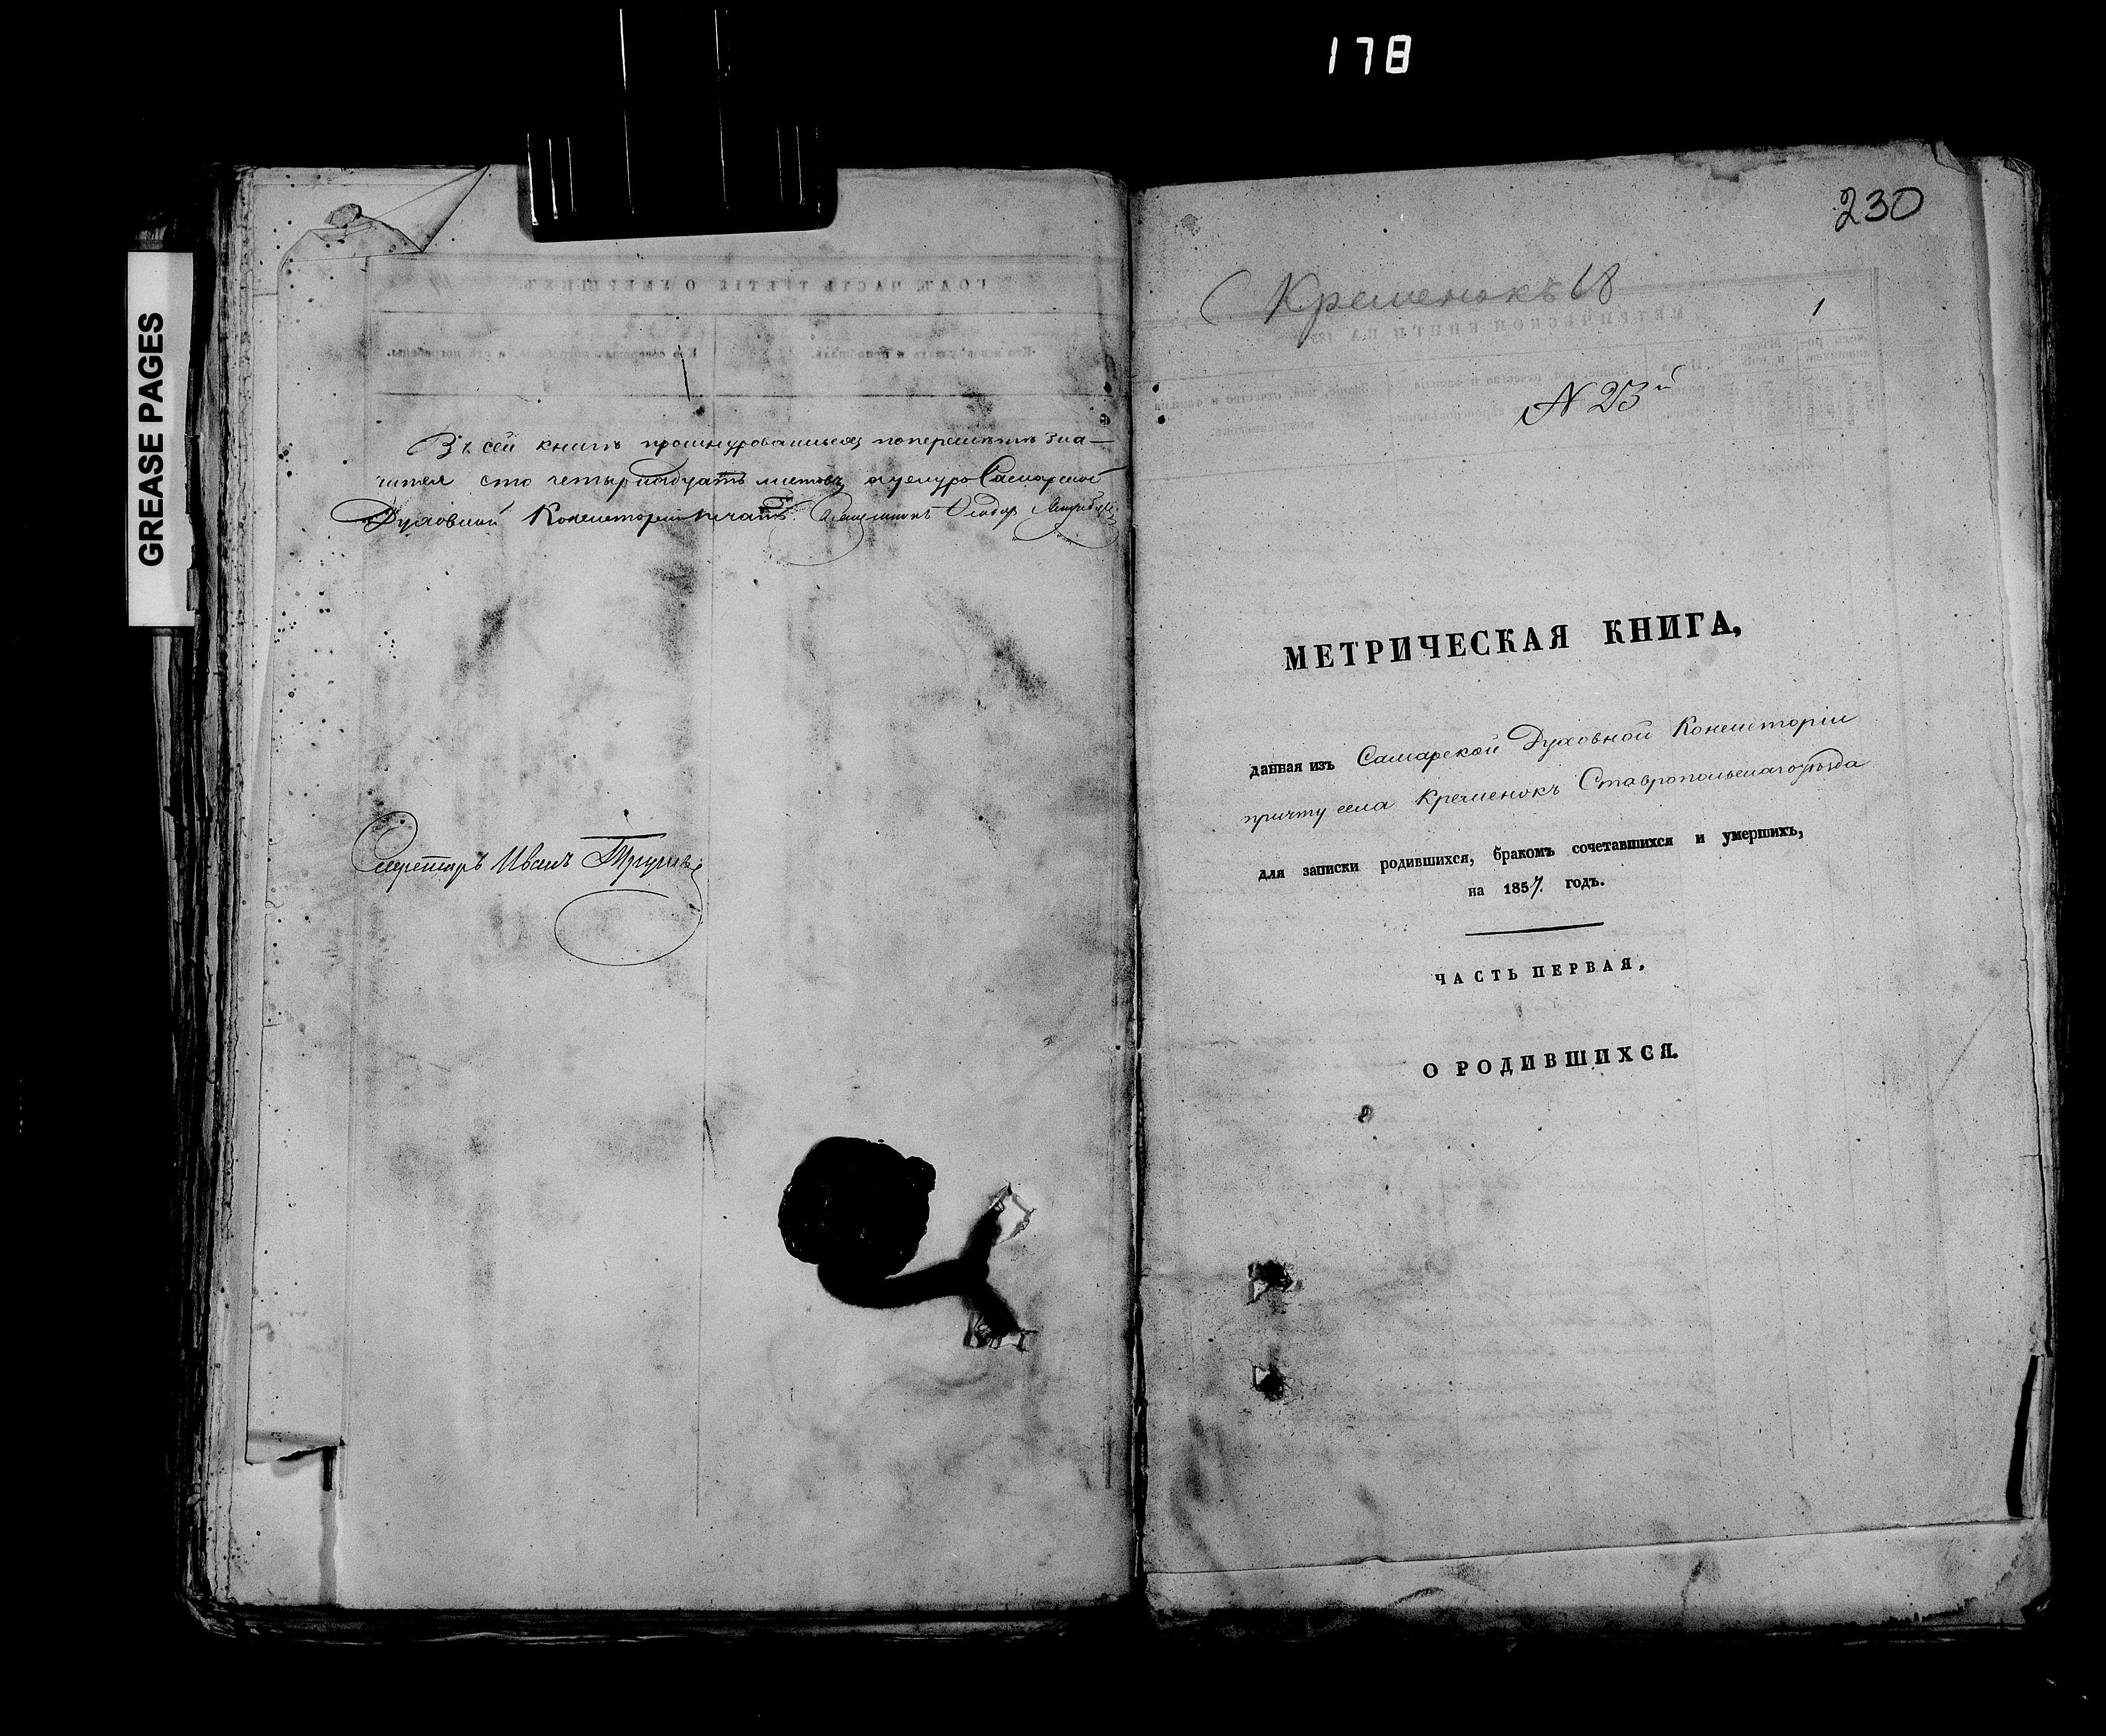 178
GREASE PAGES
Въ сей книгѣ прошнурованныхъ нопереннымъ зна-
чится сто четырнадцать листовъ за укупро Самарской
Духовной Консисторіи печать. Священникъ Ѳеодоръ
Секретарь Иванъ
230
С. Кременокъ 18
1
№ 23й
МЕТРИЧЕСКАЯ КНИГА,
данная изъ Самарской Духовной Консисторіи
причту села Кременокъ Ставропольскаго уѣзда
для записки родившихся, бракомъ сочетавшихся и умершихъ,
на 1857. годъ.
ЧАСТЬ ПЕРВАЯ,
О РОДИВШИХСЯ.